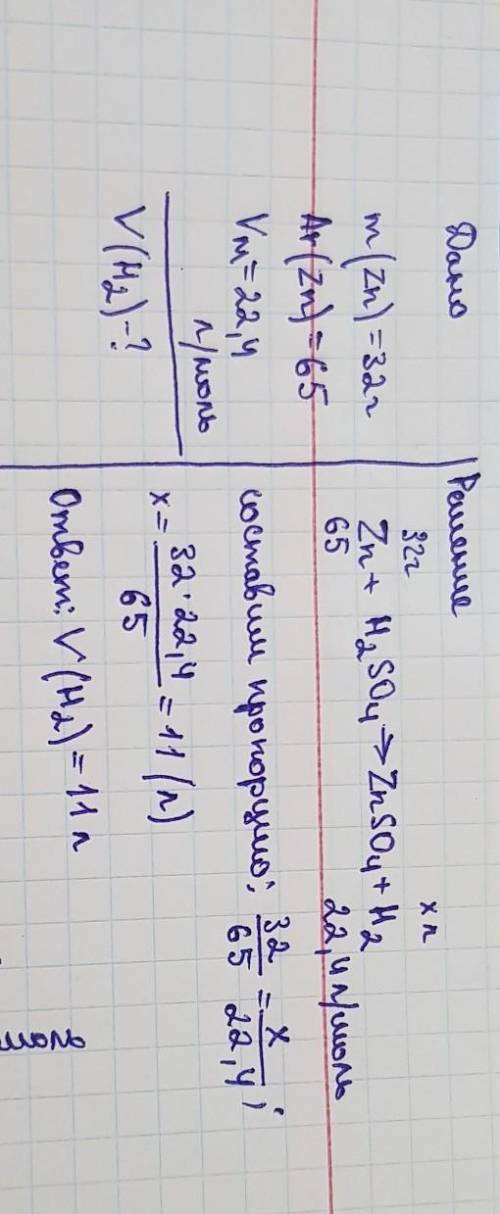 Дано
m(Zn)=32г
Ar(Zn)=65
Vm=22,4
л/моль
V(H₂)-?
Решение
32г x л
Zn + H₂SO₄ → ZnSO₄ + H₂
65 22,4 л/моль
составим пропорцию: 32/65 = x/22,4;
x = 32·22,4/65 = 11 (л)
Ответ: V(H₂)=11 л